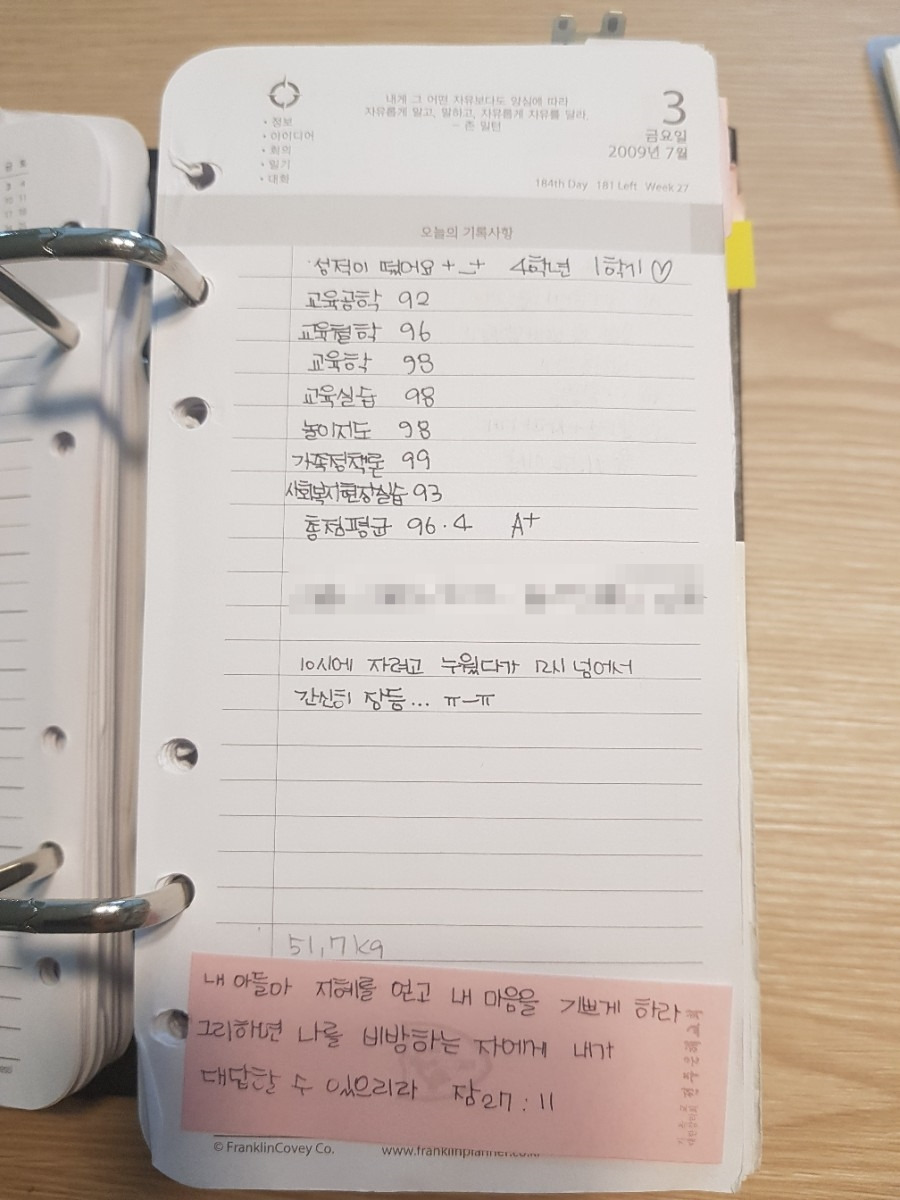 • 정보
• 아이디어
• 회의
• 일기
• 대화
내게 그 어떤 자유보다도 양심에 따라
자유롭게 알고, 말하고, 자유롭게 자유를 달라.
- 존 밀턴
3
금요일
2009년 7월
184th Day 181 Left Week 27
오늘의 기록사항
성적이 떴어요 +_+ 4학년 1학기♡
교육공학 92
교육철학 96
교육학 98
교육실습 98
놀이지도 98
가족정책론 99
사회복지현장실습 93
총점평균 96.4 A+
10시에 자려고 누웠다가 12시 넘어서
간신히 잠듬... ㅠ_ㅠ
51.7kg
내 아들아 지혜를 얻고 내 마음을 기쁘게 하라
그리하면 나를 비방하는 자에게 내가
대답할 수 있으리라 잠27:11
© FranklinCovey Co. www.franklinplanner.co.kr
금 토
3 4
10 11
17 18